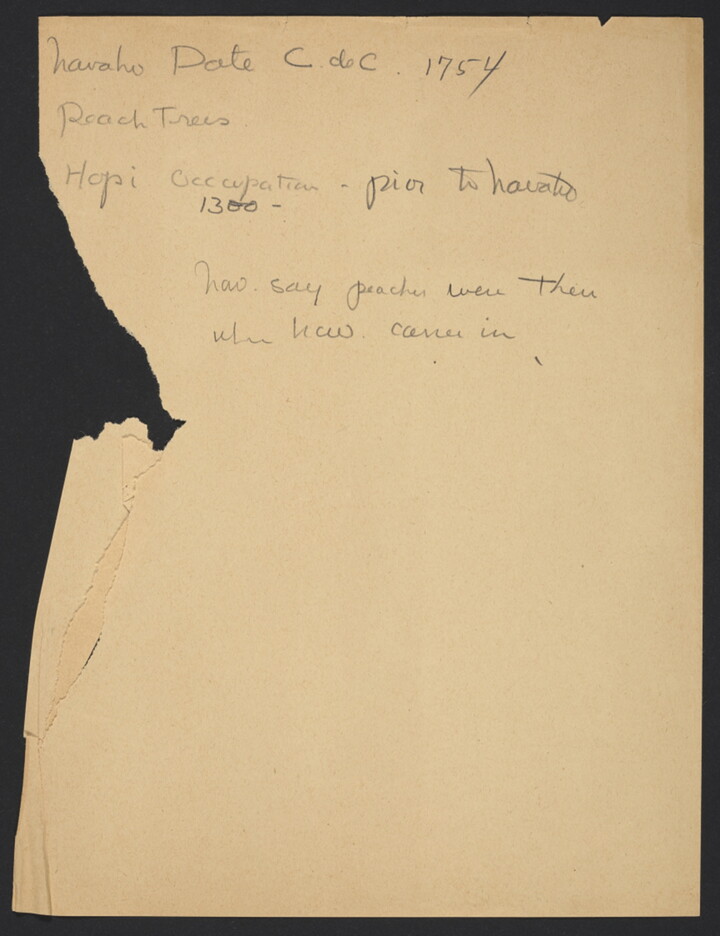 Navaho Date C. de C. 1754
Peach Trees
Hopi Occupation - prior to Navaho
1300 -
Nav. say peaches were there
when Nav. came in